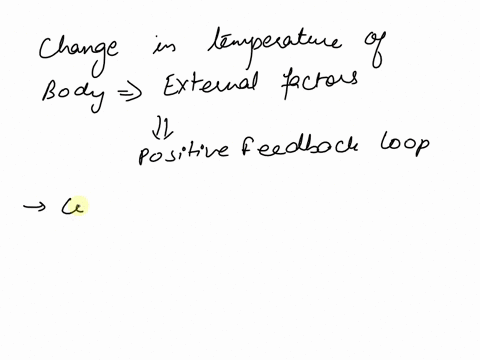 Change in temperature of
Body ⇒ External factors
⇓
Positive Feedback loop
→